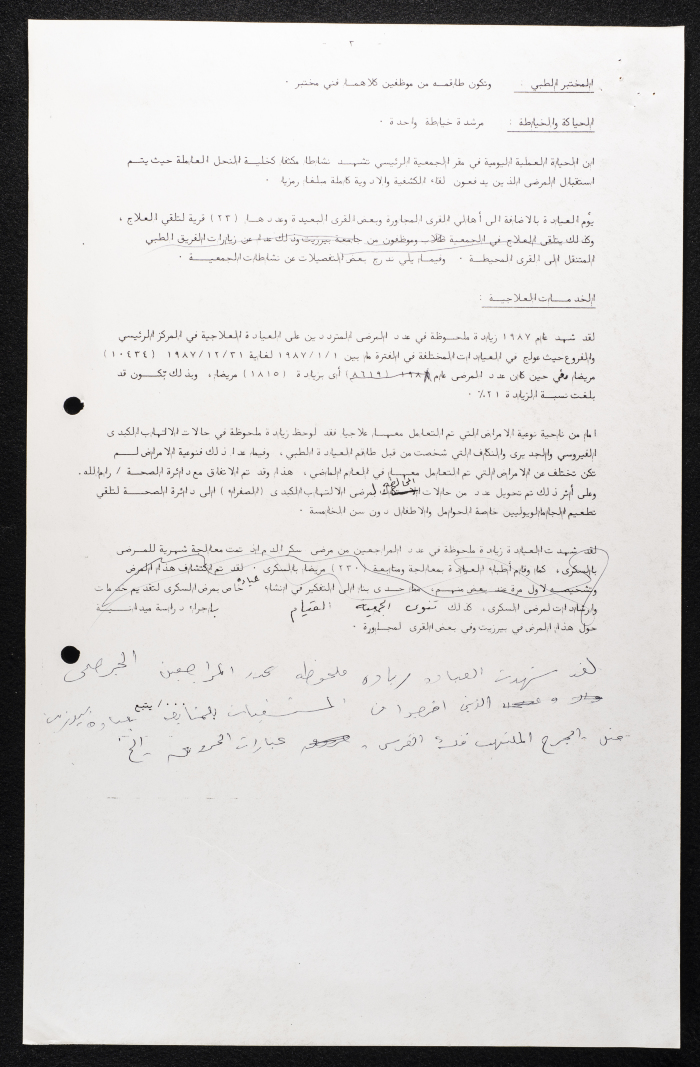 - ٣ -
المختبر الطبي : وتكون طاقمه من موظفين كلاهما فني مختبر .
الحياكة والخياطة : مرشدة خياطة واحدة .
ان الحياة العملية اليومية في مقر الجمعية الرئيسي تشهد نشاطا مكثفا كخلية النحل العاملة حيث يتم
استقبال المرضى الذين يدفعون لقاء الكشفية والادوية كاملة مبلغا رمزيا .
يؤم العيادة بالاضافة الى أهالي القرى المجاورة وبعض القرى البعيدة وعددها (٢٣) قرية لتلقي العلاج ،
وكذلك يتلقى العلاج في الجمعية طلاب وموظفون من جامعة بيرزيت وذلك عدا عن زيارات الفريق الطبي
المتنقل الى القرى المحيطة . وفيما يلي ندرج بعض التفصيلات عن نشاطات الجمعية .
الخدمات العلاجية :
لقد شهد عام ١٩٨٧ زيادة ملحوظة في عدد المرضى المترددين على العيادة العلاجية في المركز الرئيسي
والفروع حيث عولج في العيادات المختلفة في الفترة ما بين ١٩٨٧/١/١ لغاية ١٩٨٧/١٢/٣١ (١٠٤٣٤)
مريضا، في حين كان عدد المرضى عام ١٩٨٦ (٨٦١٩) أي بزيادة (١٨١٥) مريضا، وبذلك تكون قد
بلغت نسبة الزيادة ٢١٪ .
اما من ناحية نوعية الامراض التي تم التعامل معها علاجيا فقد لوحظ زيادة ملحوظة في حالات الالتهاب الكبدى
الفيروسي والجدرى والنكاف التي شخصت من قبل طاقم العيادة الطبي ، وفيما عدا ذلك فنوعية الامراض لم
تكن تختلف عن الامراض التي تم التعامل معها في العام الماضي ، هذا وقد تم الاتفاق مع دائرة الصحة / رام الله.
وعلى أثر ذلك تم تحويل عدد من حالات المخالطة لمرضى الالتهاب الكبدى (الصفراء) الى دائرة الصحة لتلقي
تطعيم الجاماجلوبيولين خاصة الحوامل والاطفال دون سن الخامسة .
لقد شهدت العيادة زيادة ملحوظة في عدد المراجعين من مرضى سكر الدم اذ تمت معالجة شهرية للمرضى
بالسكرى، كما وقام أطباء العيادة بمعالجة ومتابعة (٢٣٠) مريضا بالسكرى . لقد تم اكتشاف هذا المرض
وتشخيصه لاول مرة عند بعض منهم، مما حدى بنا الى التفكير في انشاء عيادة خاص بمرض السكرى لتقديم خدمات
وارشادات لمرضى السكرى، كذلك تنوي الجمعية القيام باجراء دراسة ميدانية
حول هذا المرض في بيرزيت وفي بعض القرى المجاورة .
لقد شهدت العيادة زيادة ملحوظة بعدد المراجعين الجرحى
الذين اخرجوا من المستشفيات للمتابعة بعيادة بيرزيت
مثل الجرح الملتهب عيارات الخ